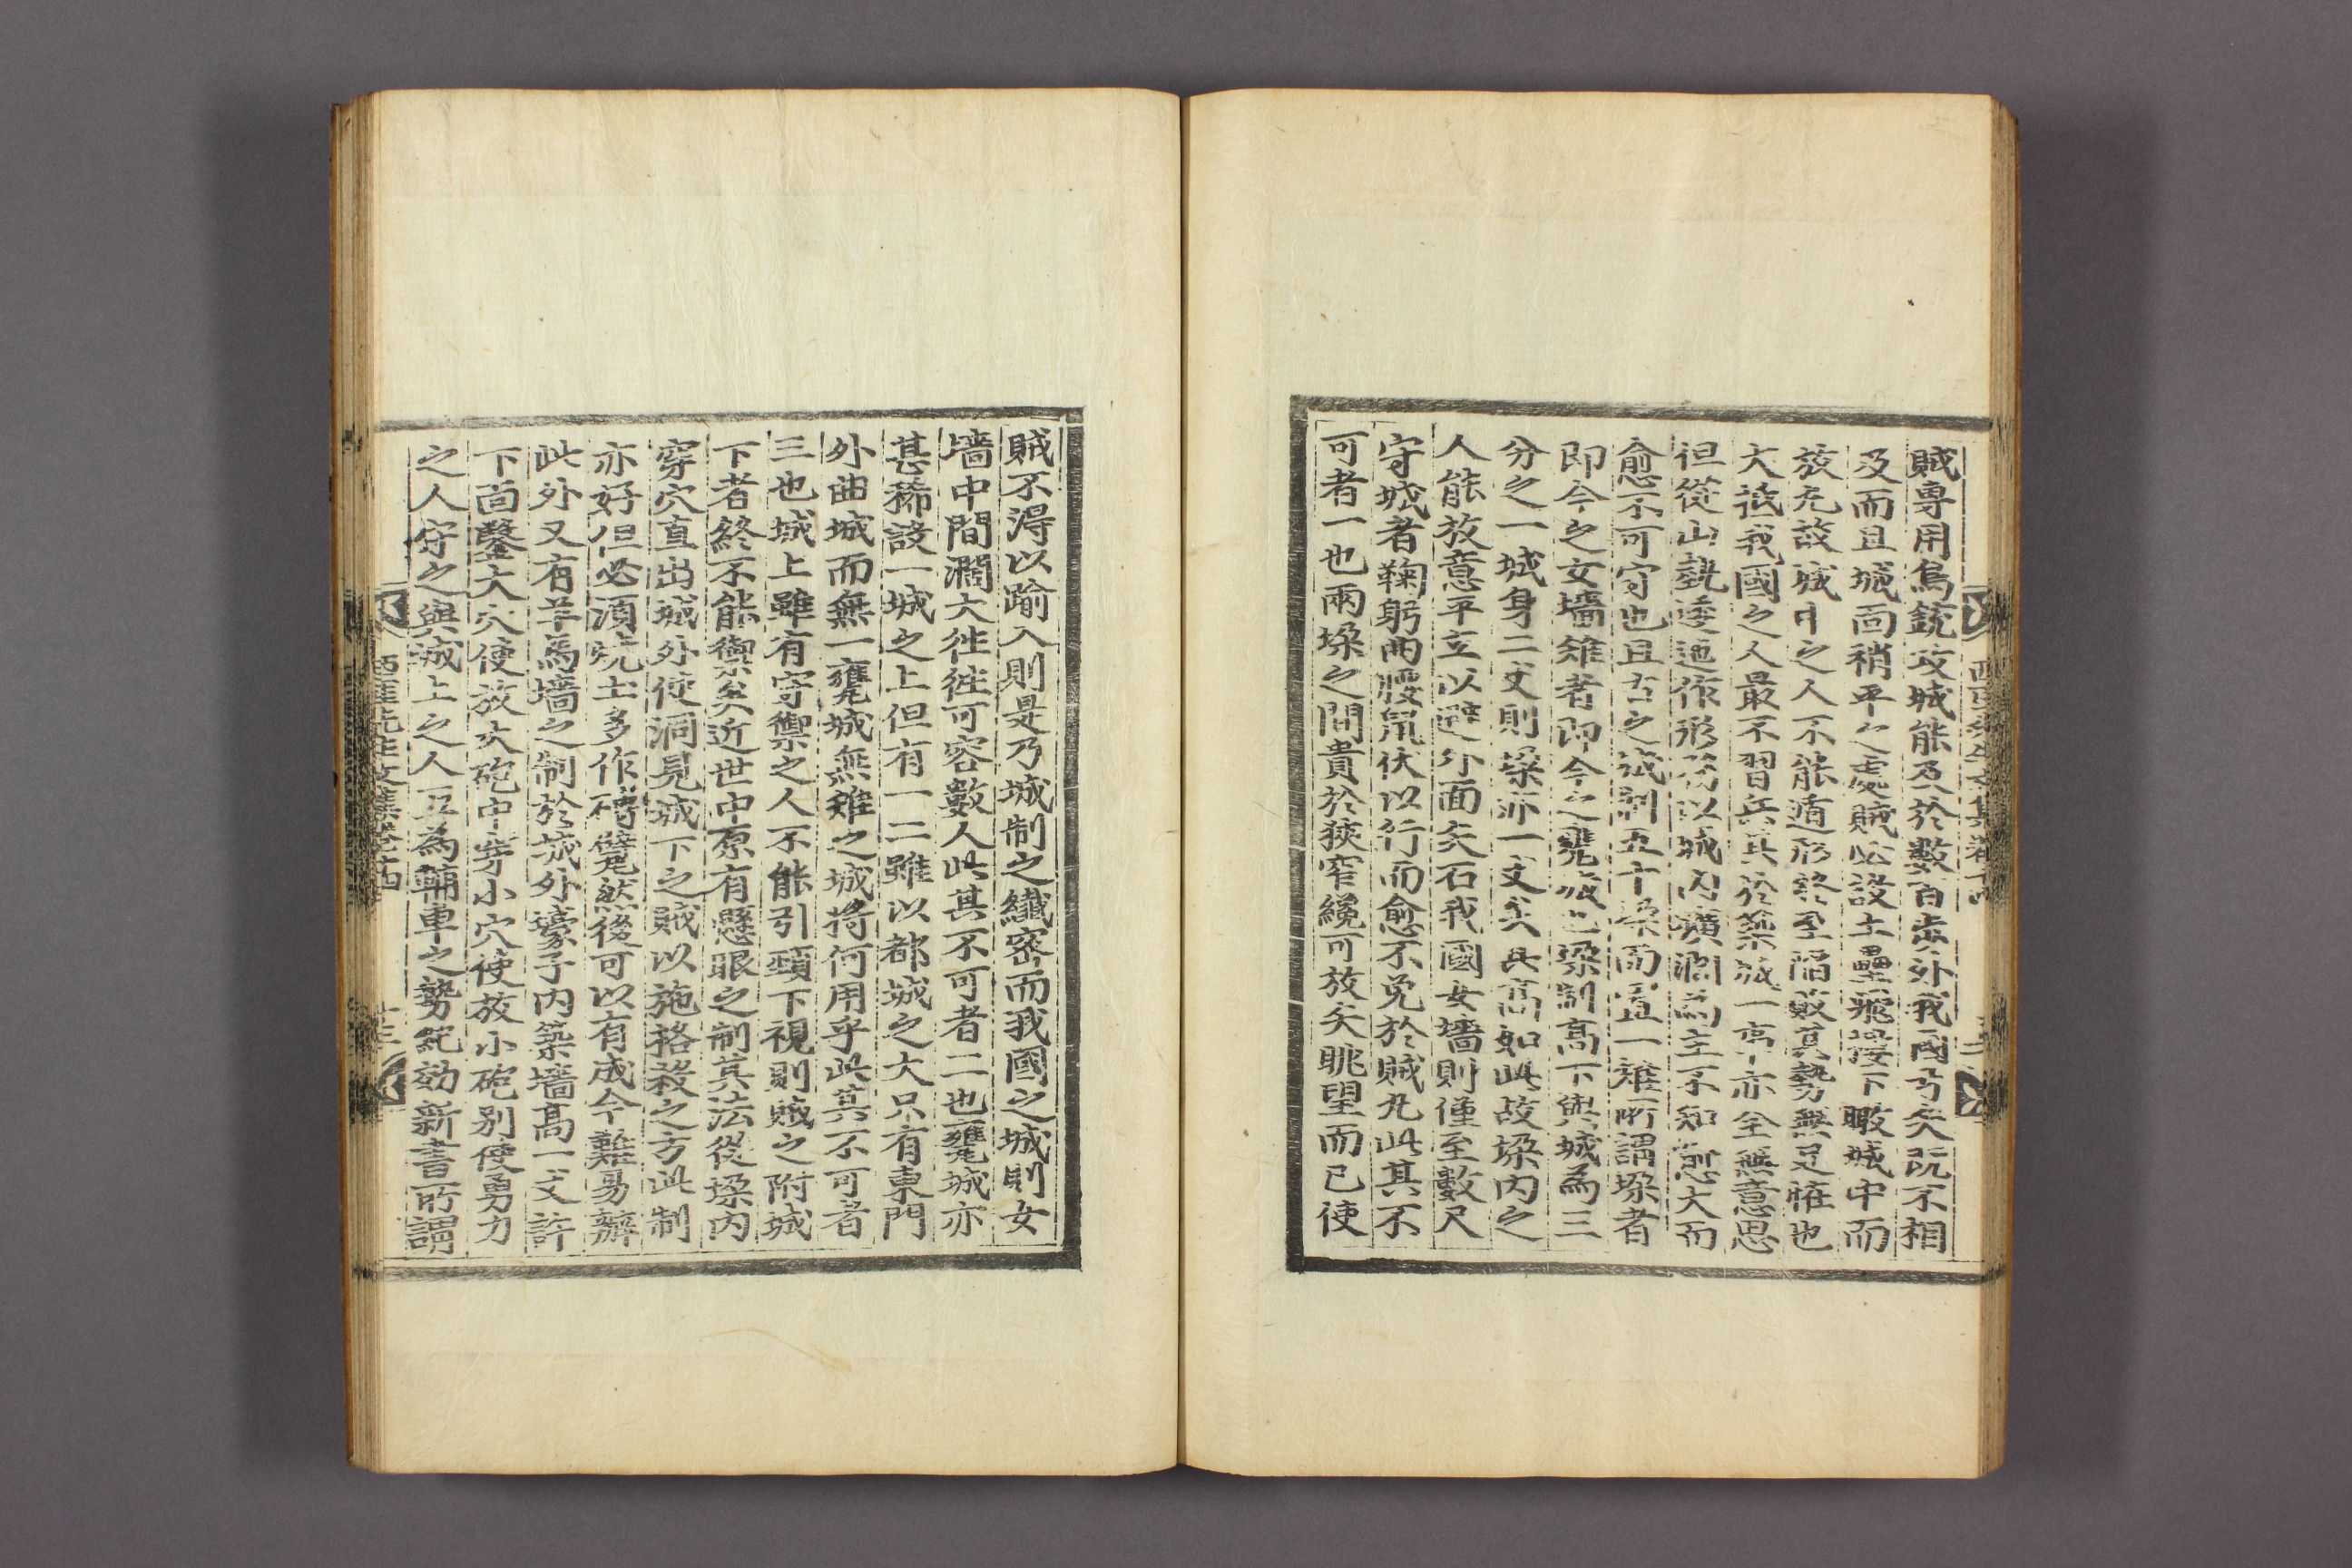 賊專用鳥銃攻城能及於數百步外我國弓矢旣不相
及而且城面稍平之處賊必設土壘飛樓下瞰城中而
放丸故城中之人不能遁形終至陷敗其勢無足怪也
大抵我國之人最不習兵其於築城一事亦全無意思
但從山勢逶迤作形務以城內廣濶爲主不知愈大而
愈不可守也且古之城制五十垜而置一雉所謂垜者
即今之女墻雉者即今之甕城也垜制高下與城爲三
分之一城身二丈則垜亦一丈矣其高如此故垜內之
人能放意平立以避外面矢石我國女墻則僅至數尺
守城者鞠躬兩腰鼠伏以行而愈不免於賊丸此其不
可者一也兩垜之間貴於狹窄纔可放矢眺望而已使
西厓先生文集卷十四
賊不得以踰入則是乃城制之纖密而我國之城則女
墻中間濶大徃徃可容數人此其不可者二也甕城亦
甚稀設一城之上但有一二雖以都城之大只有東門
外曲城而無一甕城無雉之城將何用乎此其不可者
三也城上雖有守禦之人不能引頸下視則賊之附城
下者終不能禦矣近世中原有懸眼之制其法從垜內
穿穴直出城外使洞見城下之賊以施格殺之方此制
亦好但必須燒土多作磚甓然後可以有成今難易辦
此外又有羊馬墻之制於城外壕子內築墻高一丈許
下面鑿大穴使放大砲中穿小穴使放小砲別使勇力
之人守之與城上之人互爲輔車之勢紀効新書所謂
西厓先生文集卷十四
十三